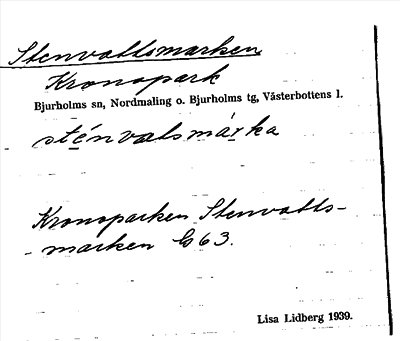 Stenvattsmarken
Kronopark
Bjurholms sn, Nordmaling o. Bjurholms tg, Västerbottens l.
sténvatsmárka
Kronoparken Stenvatts-
- marken G 63.
Lisa Lidberg 1939.